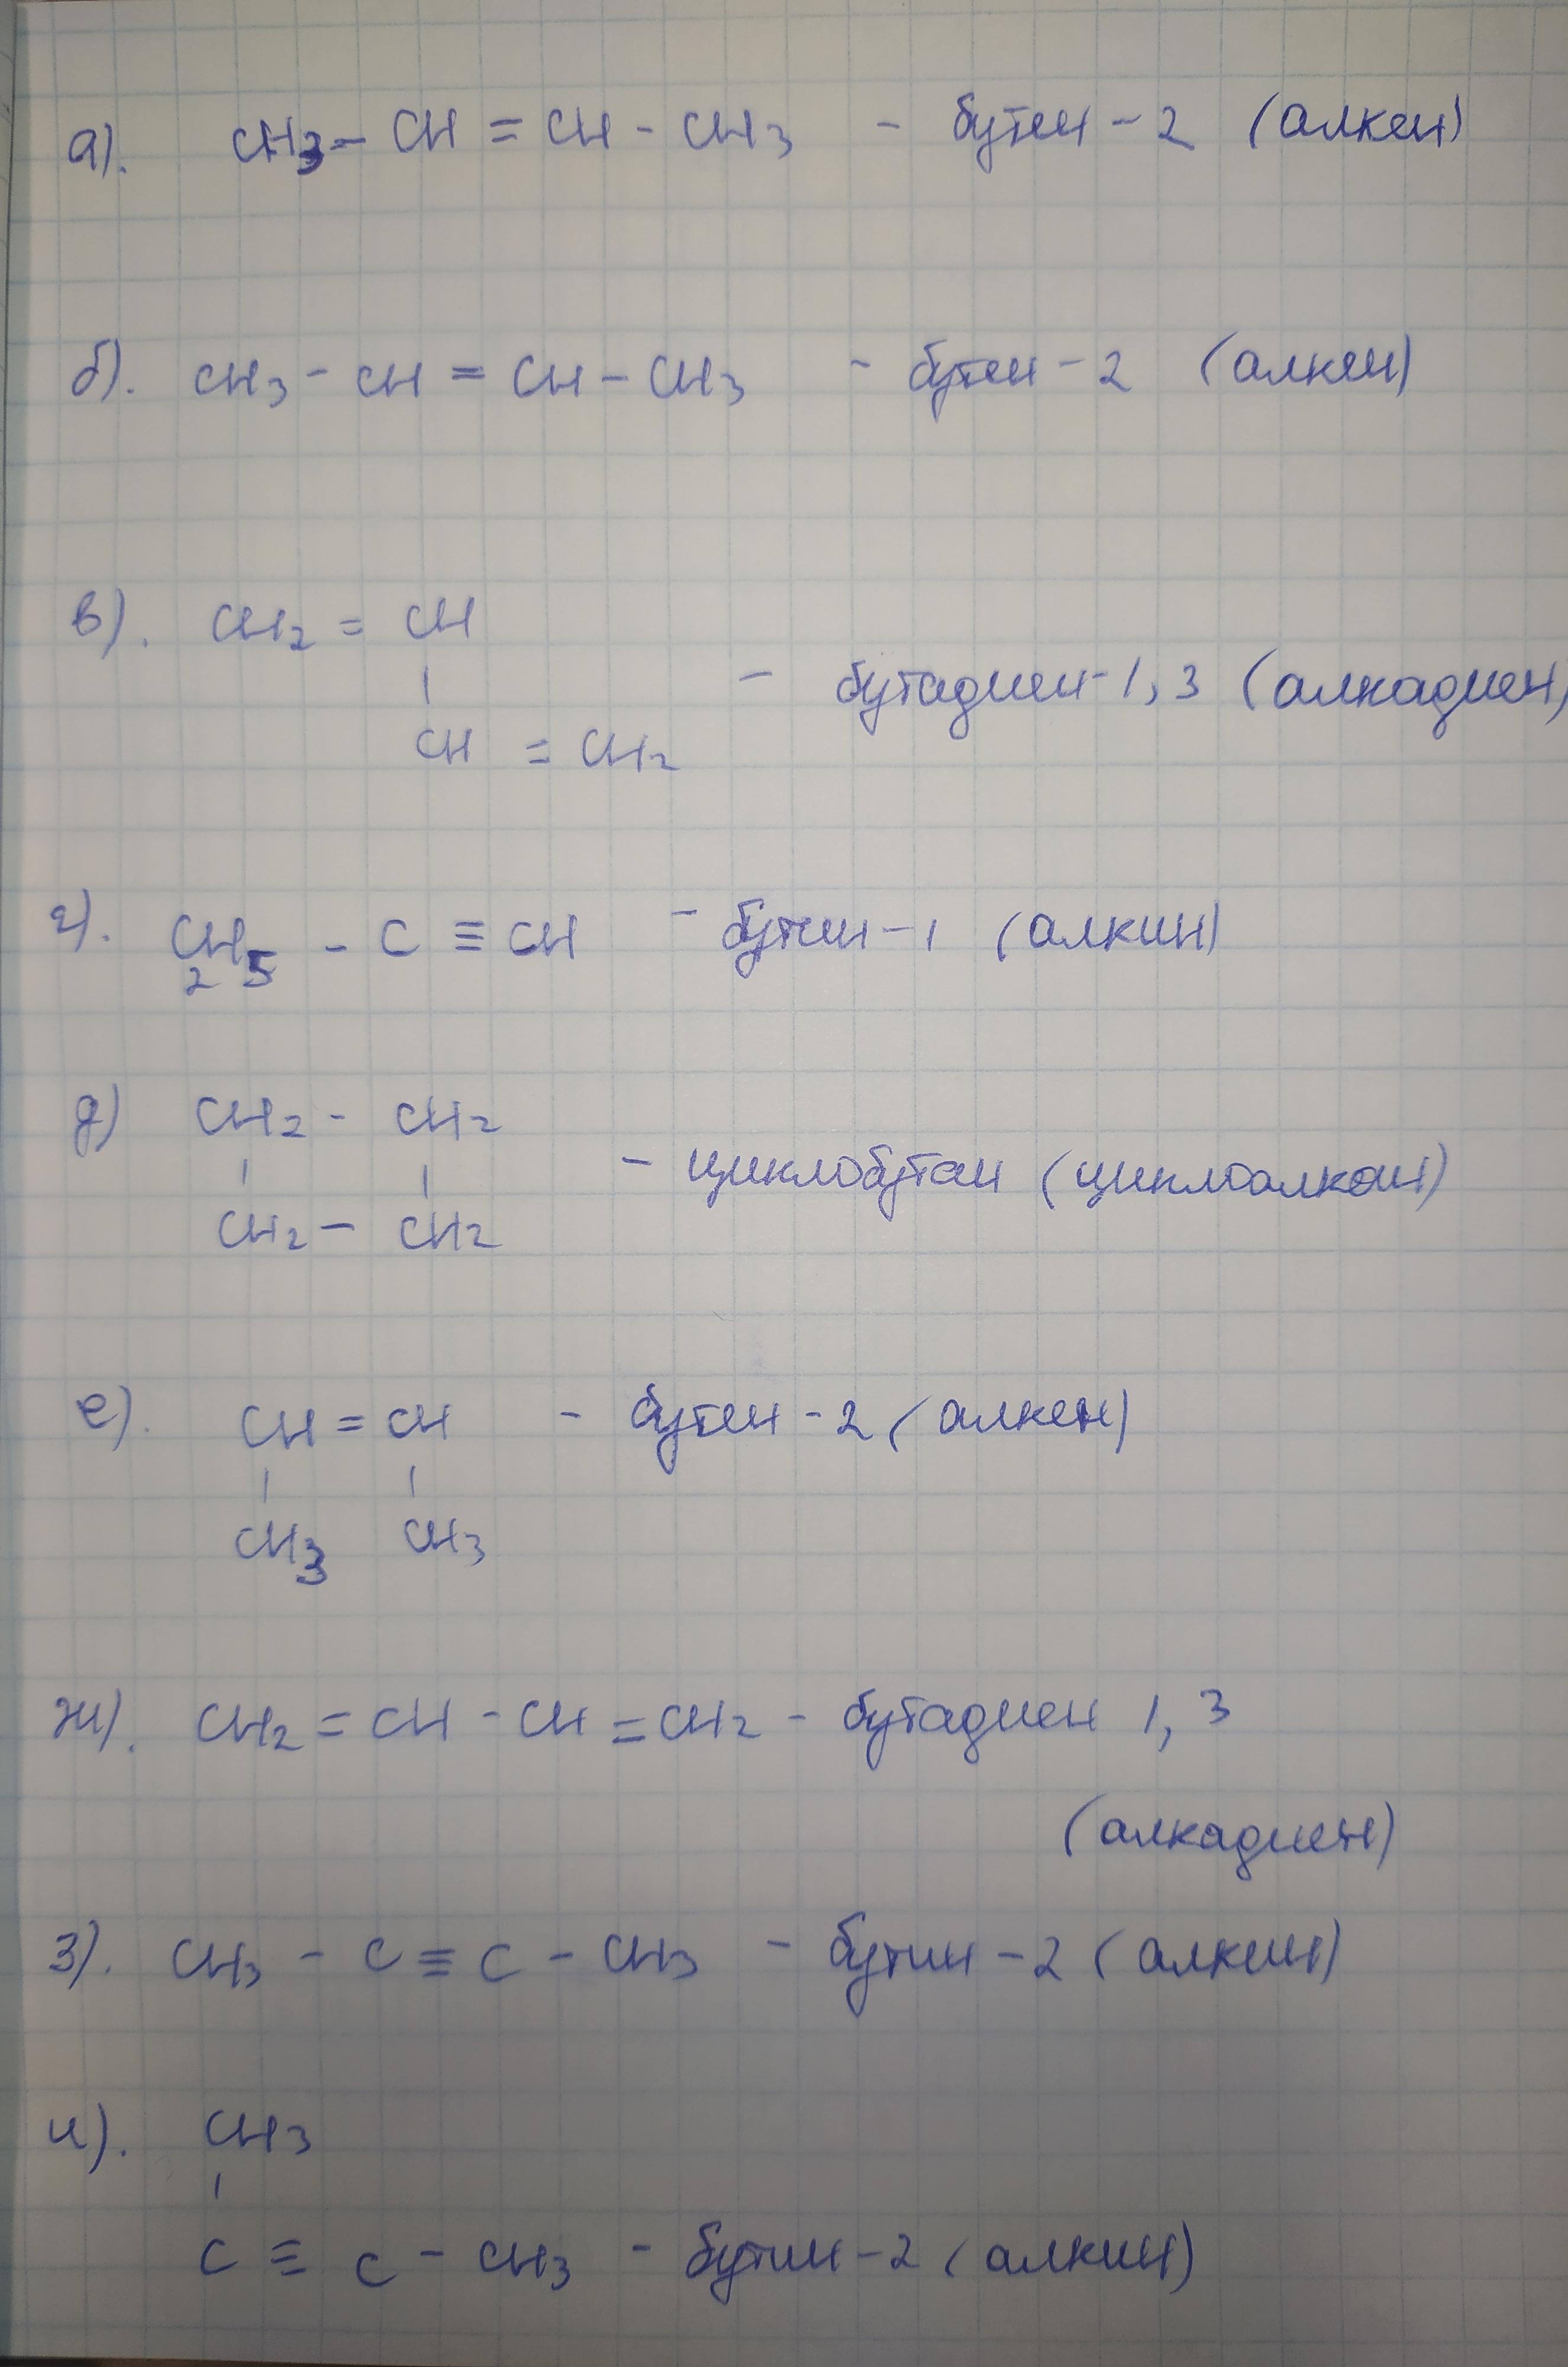 а). CH3 - CH = CH - CH3 - бутен - 2 (алкен)
б). CH3 - CH = CH - CH3 - бутен - 2 (алкен)
в). CH2 = CH
|
- бутадиен-1,3 (алкадиен)
CH = CH2
г). C2H5 - C ≡ CH - бутин-1 (алкин)
д) CH2 - CH2
| |
- циклобутан (циклоалкан)
CH2 - CH2
е). CH = CH - бутен - 2 (алкен)
| |
CH3 CH3
ж). CH2 = CH - CH = CH2 - бутадиен 1,3
(алкадиен)
з). CH3 - C ≡ C - CH3 - бутин - 2 (алкин)
и). CH3
|
C ≡ C - CH3 - бутин - 2 (алкин)